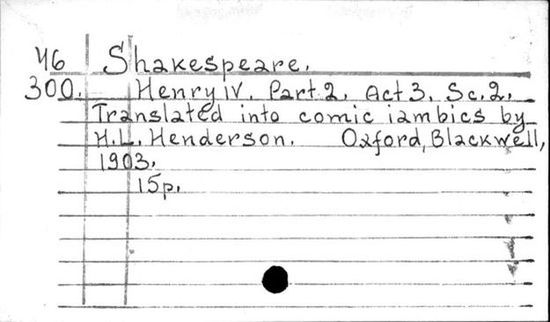 46 Shakespeare.
300. Henry IV. Part.2. Act 3. Sc.2.
Translated into comic iambics by
H.L. Henderson. Oxford, Blackwell,
1903.
15p.